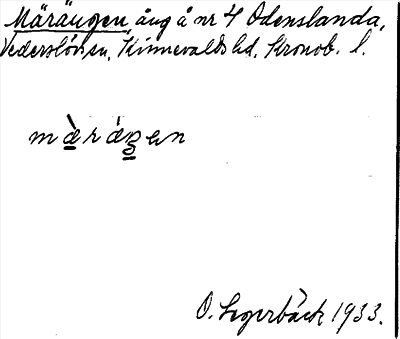 Märängen äng å nr 4 Odenslanda,
Vederslövs sn, Kinnevalds hd, Kronob. l.
mæ̀ráŋen
O. Segerbäck 1933.